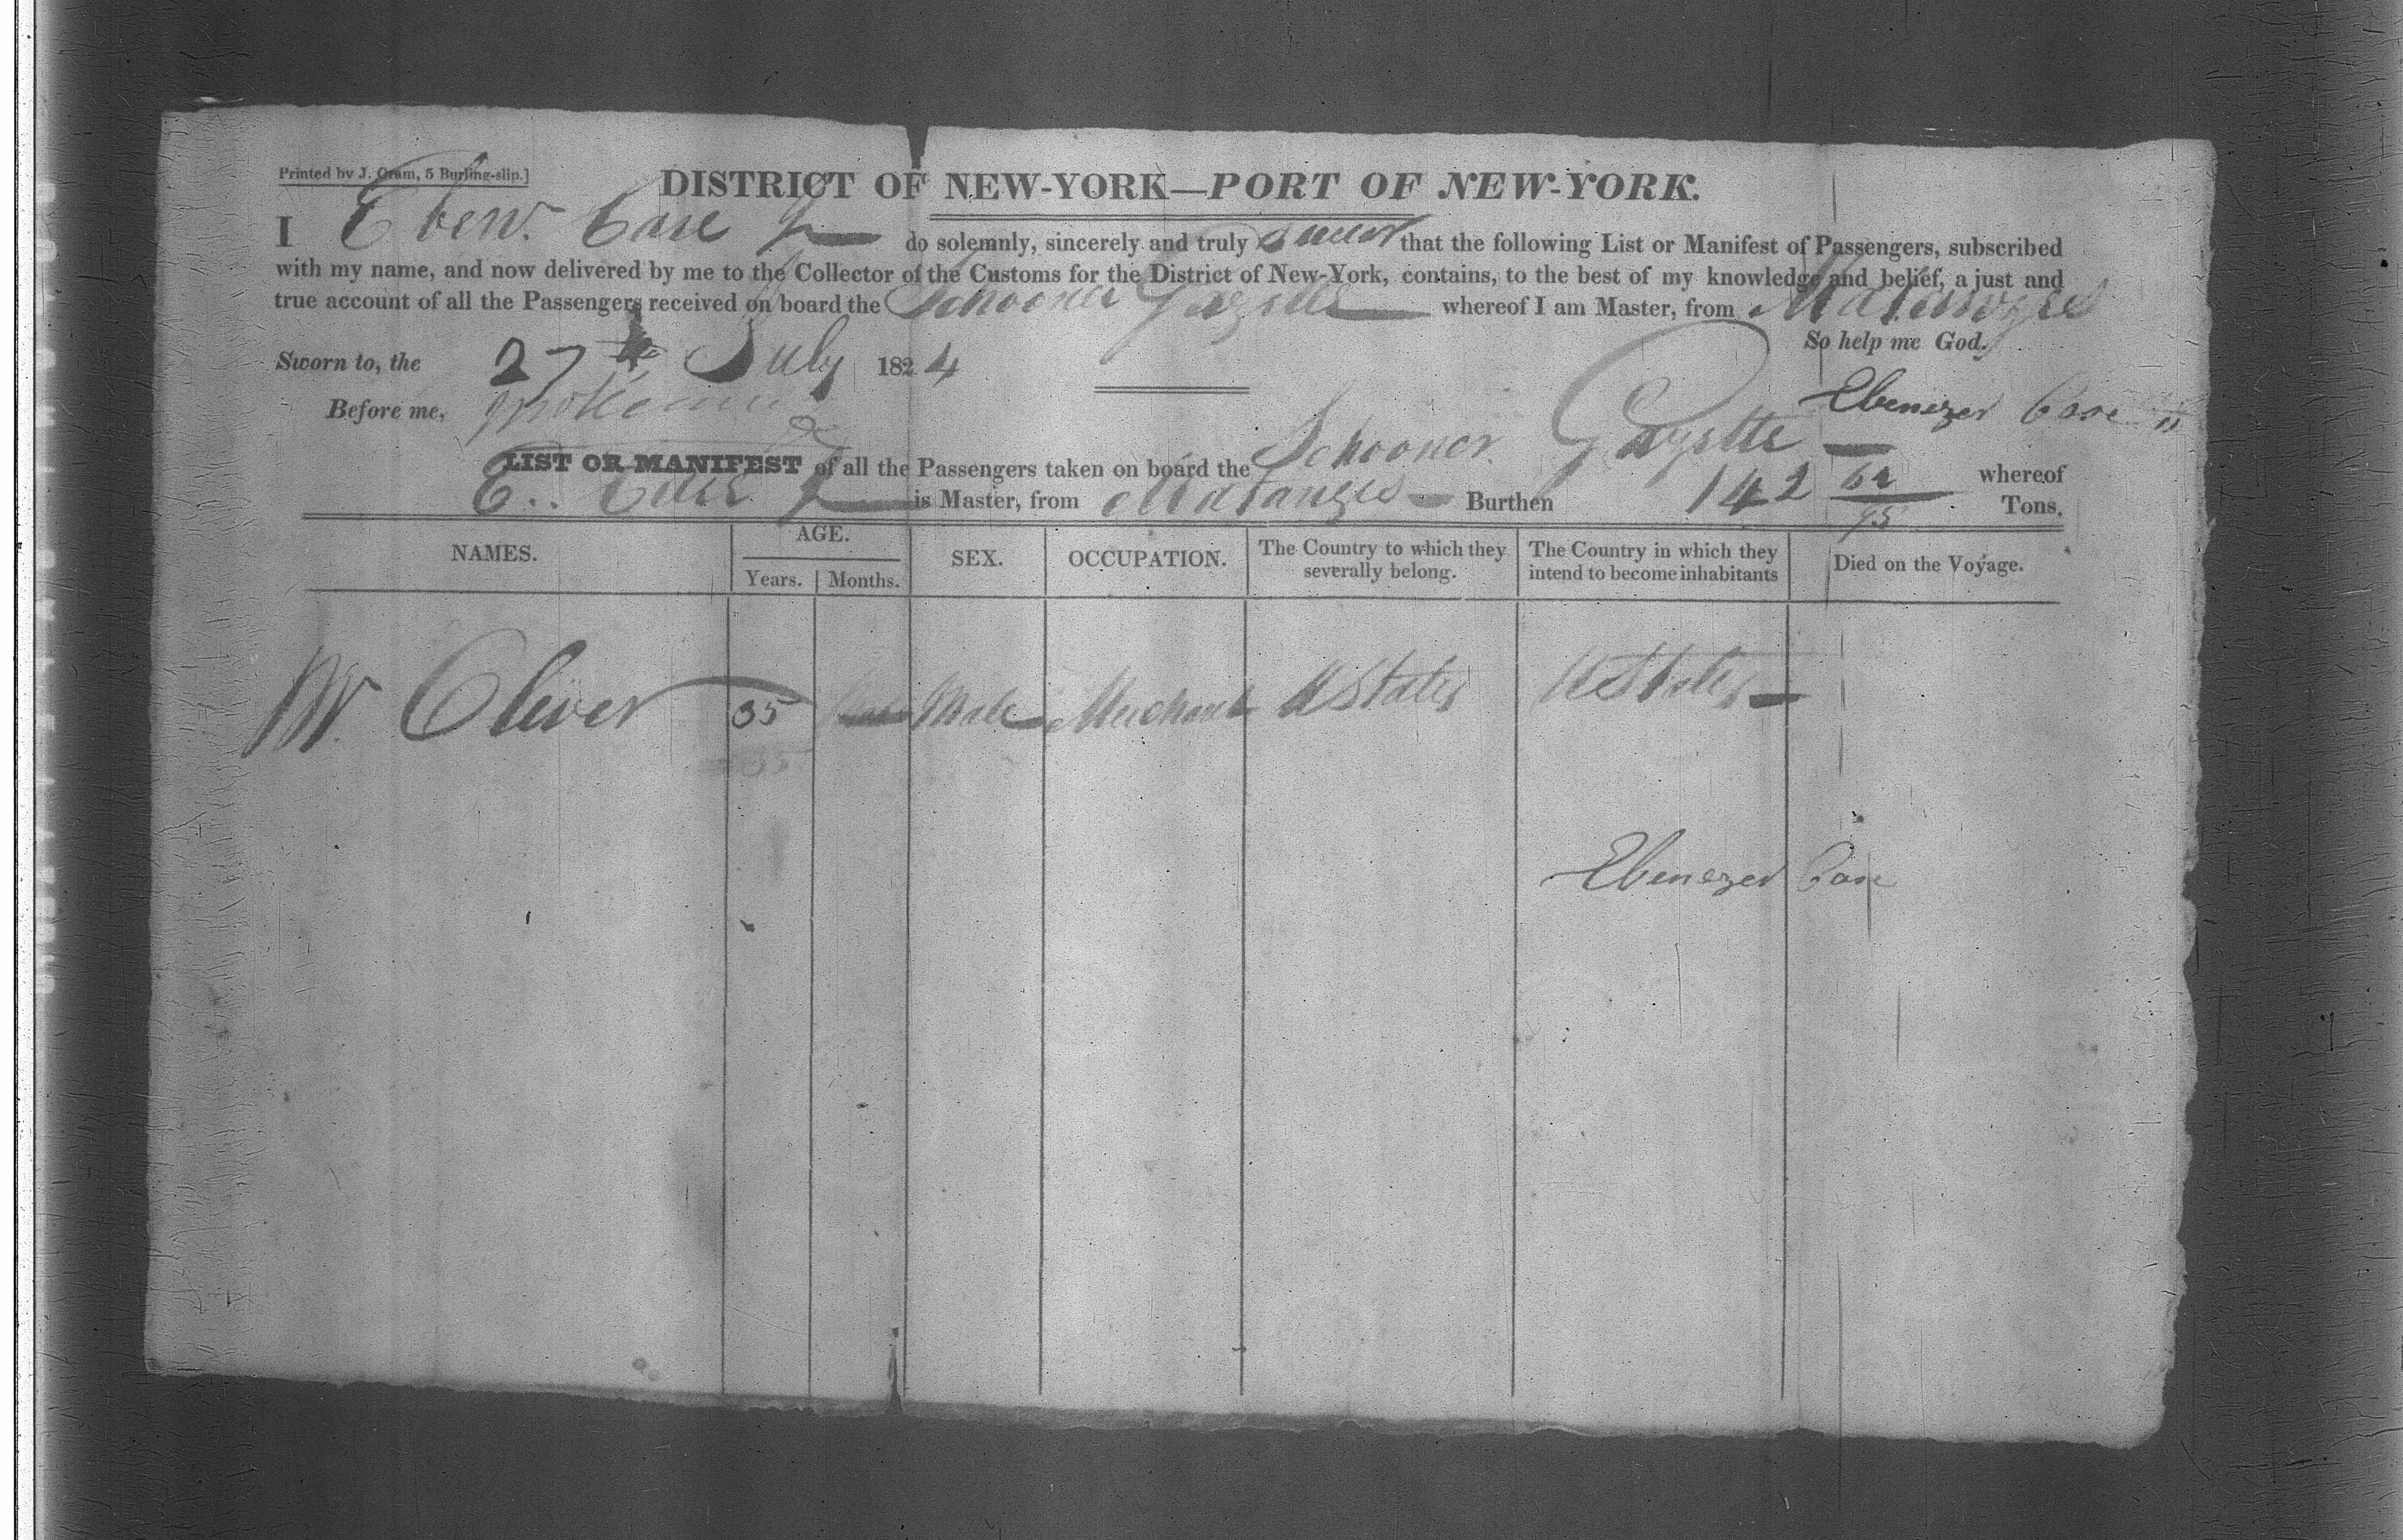 Printed by J. Oram, 5 Burling-slip.]
DISTRICT OF NEW-YORK—PORT OF NEW-YORK.
I Eben. Case Jr do solemnly, sincerely and truly swear that the following List or Manifest of Passengers, subscribed
with my name, and now delivered by me to the Collector of the Customs for the District of New-York, contains, to the best of my knowledge and belief, a just and
true account of all the Passengers received on board the Schooner Gazette whereof I am Master, from Matanzes
So help me God.
Sworn to, the 27th July 1824
Ebenezer Case Jr
Before me,
LIST OR MANIFEST of all the Passengers taken on board the Schooner Gazette whereof
E. Case Jr is Master, from Matanzes Burthen 142 62/95 Tons.
NAMES. AGE. Years. Months. SEX. OCCUPATION. The Country to which they severally belong. The Country in which they intend to become inhabitants Died on the Voyage.
Mr. Oliver 35 Male Merchant UStates UStates
35
Ebenezer Case